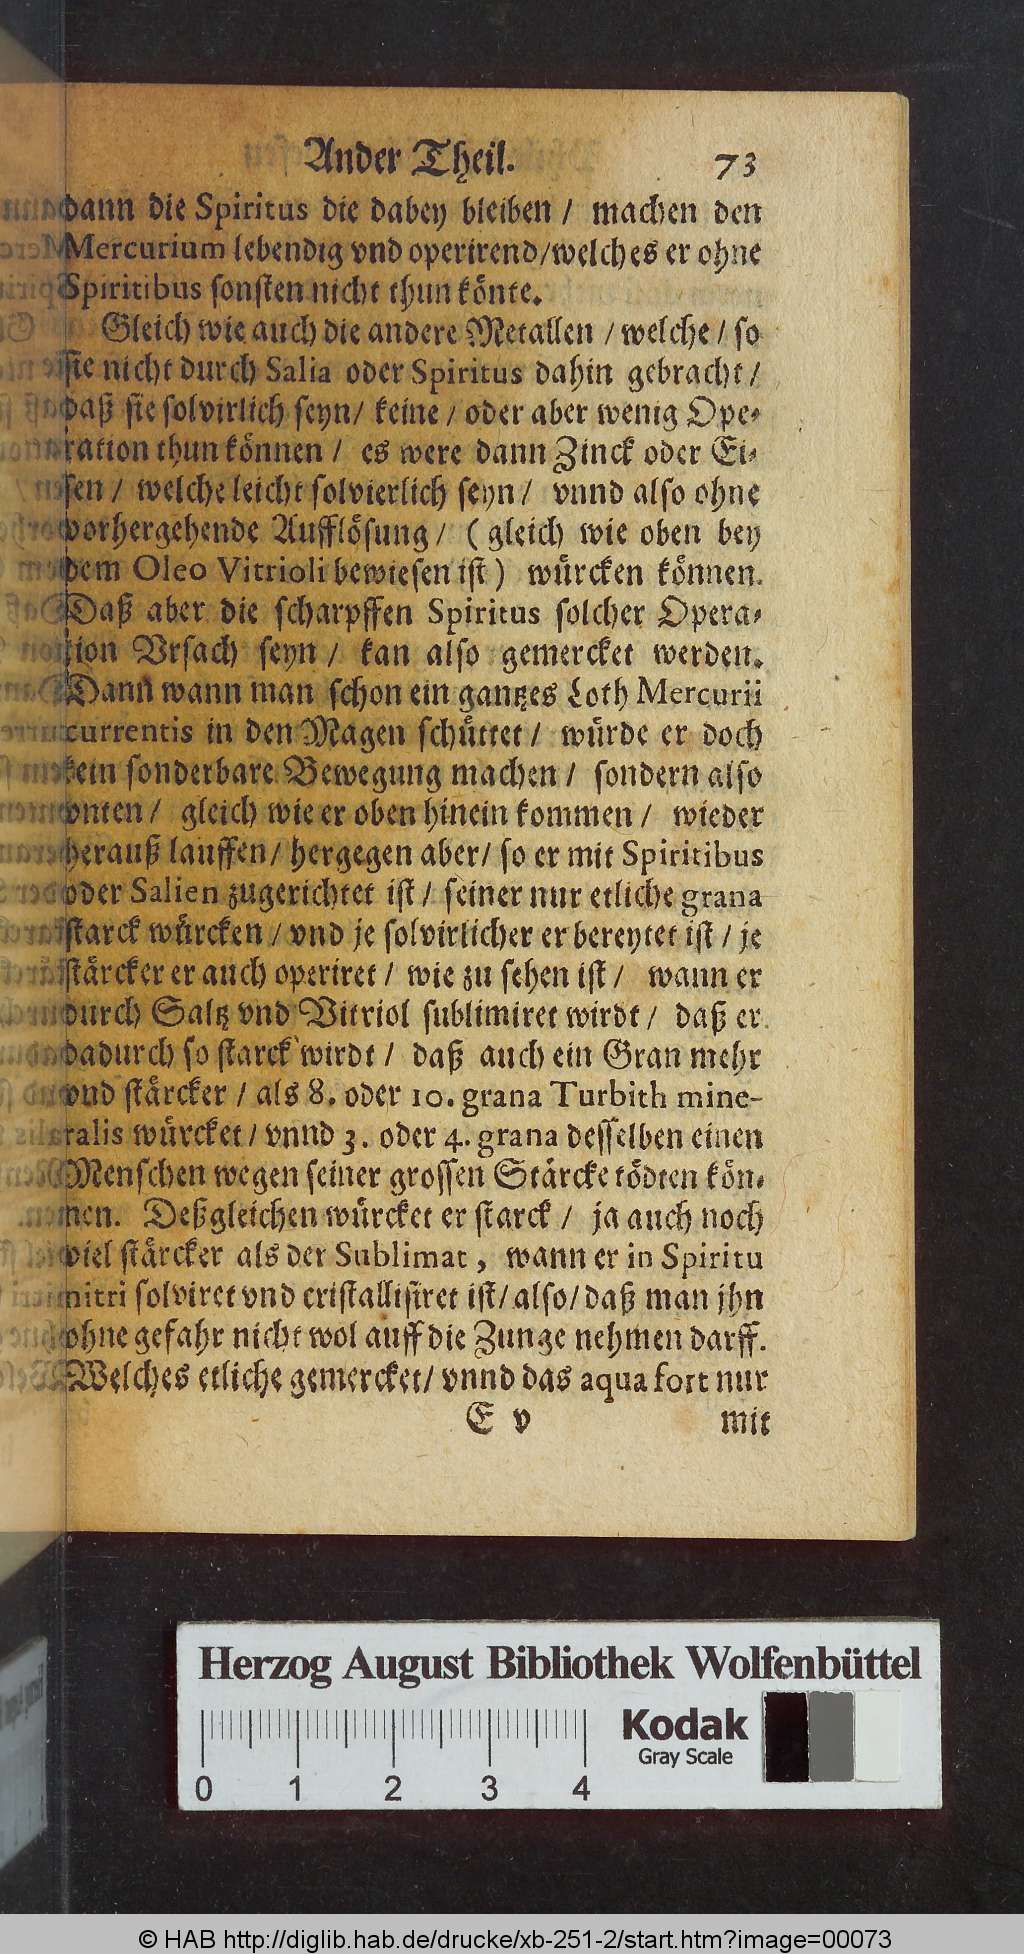 Ander Theil. 73
dann die Spiritus die dabey bleiben / machen den
Mercurium lebendig vnd operirend/welches er ohne
Spiritibus sonsten nicht thun könte.
Gleich wie auch die andere Metallen / welche / so
sie nicht durch Salia oder Spiritus dahin gebracht /
daß sie solvirlich seyn/ keine / oder aber wenig Ope-
ration thun können / es were dann Zinck oder Ei-
sen / welche leicht solvierlich seyn / vnnd also ohne
vorhergehende Aufflösung / ( gleich wie oben bey
dem Oleo Vitrioli bewiesen ist ) würcken können.
Daß aber die scharpffen Spiritus solcher Opera-
tion Vrsach seyn / kan also gemercket werden.
Dann wann man schon ein gantzes Loth Mercurii
currentis in den Magen schüttet / würde er doch
kein sonderbare Bewegung machen / sondern also
vnten / gleich wie er oben hinein kommen / wieder
herauß lauffen / hergegen aber/ so er mit Spiritibus
oder Salien zugerichtet ist / seiner nur etliche grana
starck würcken / vnd je solvirlicher er bereytet ist / je
stärcker er auch operiret / wie zu sehen ist / wann er
durch Saltz vnd Vitriol sublimiret wirdt / daß er
dadurch so starck wirdt / daß auch ein Gran mehr
vnd stärcker / als 8. oder 10. grana Turbith mine-
ralis würcket / vnnd 3. oder 4. grana desselben einen
Menschen wegen seiner grossen Stärcke tödten kön-
nen. Deßgleichen würcket er starck / ja auch noch
viel stärcker als der Sublimat, wann er in Spiritu
nitri solviret vnd cristallisiret ist/ also/ daß man jhn
ohne gefahr nicht wol auff die Zunge nehmen darff.
Welches etliche gemercket/ vnnd das aqua fort nur
E v mit
Herzog August Bibliothek Wolfenbüttel
Kodak
Gray Scale
0 1 2 3 4
© HAB http://diglib.hab.de/drucke/xb-251-2/start.htm?image=00073